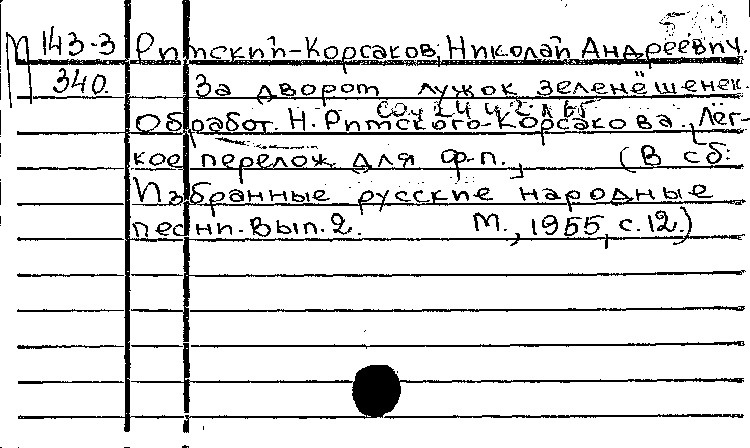 М 143-3 Римский-Корсаков, Николай Андреевич.
340. За двором лужок зеленёшенек.
Обработ. Н. Римского-Корсакова. Лёг-
кое перелож. для ф-п., (В сб:
Избранные русские народные
песни. Вып. 2. М., 1955, с. 12.)